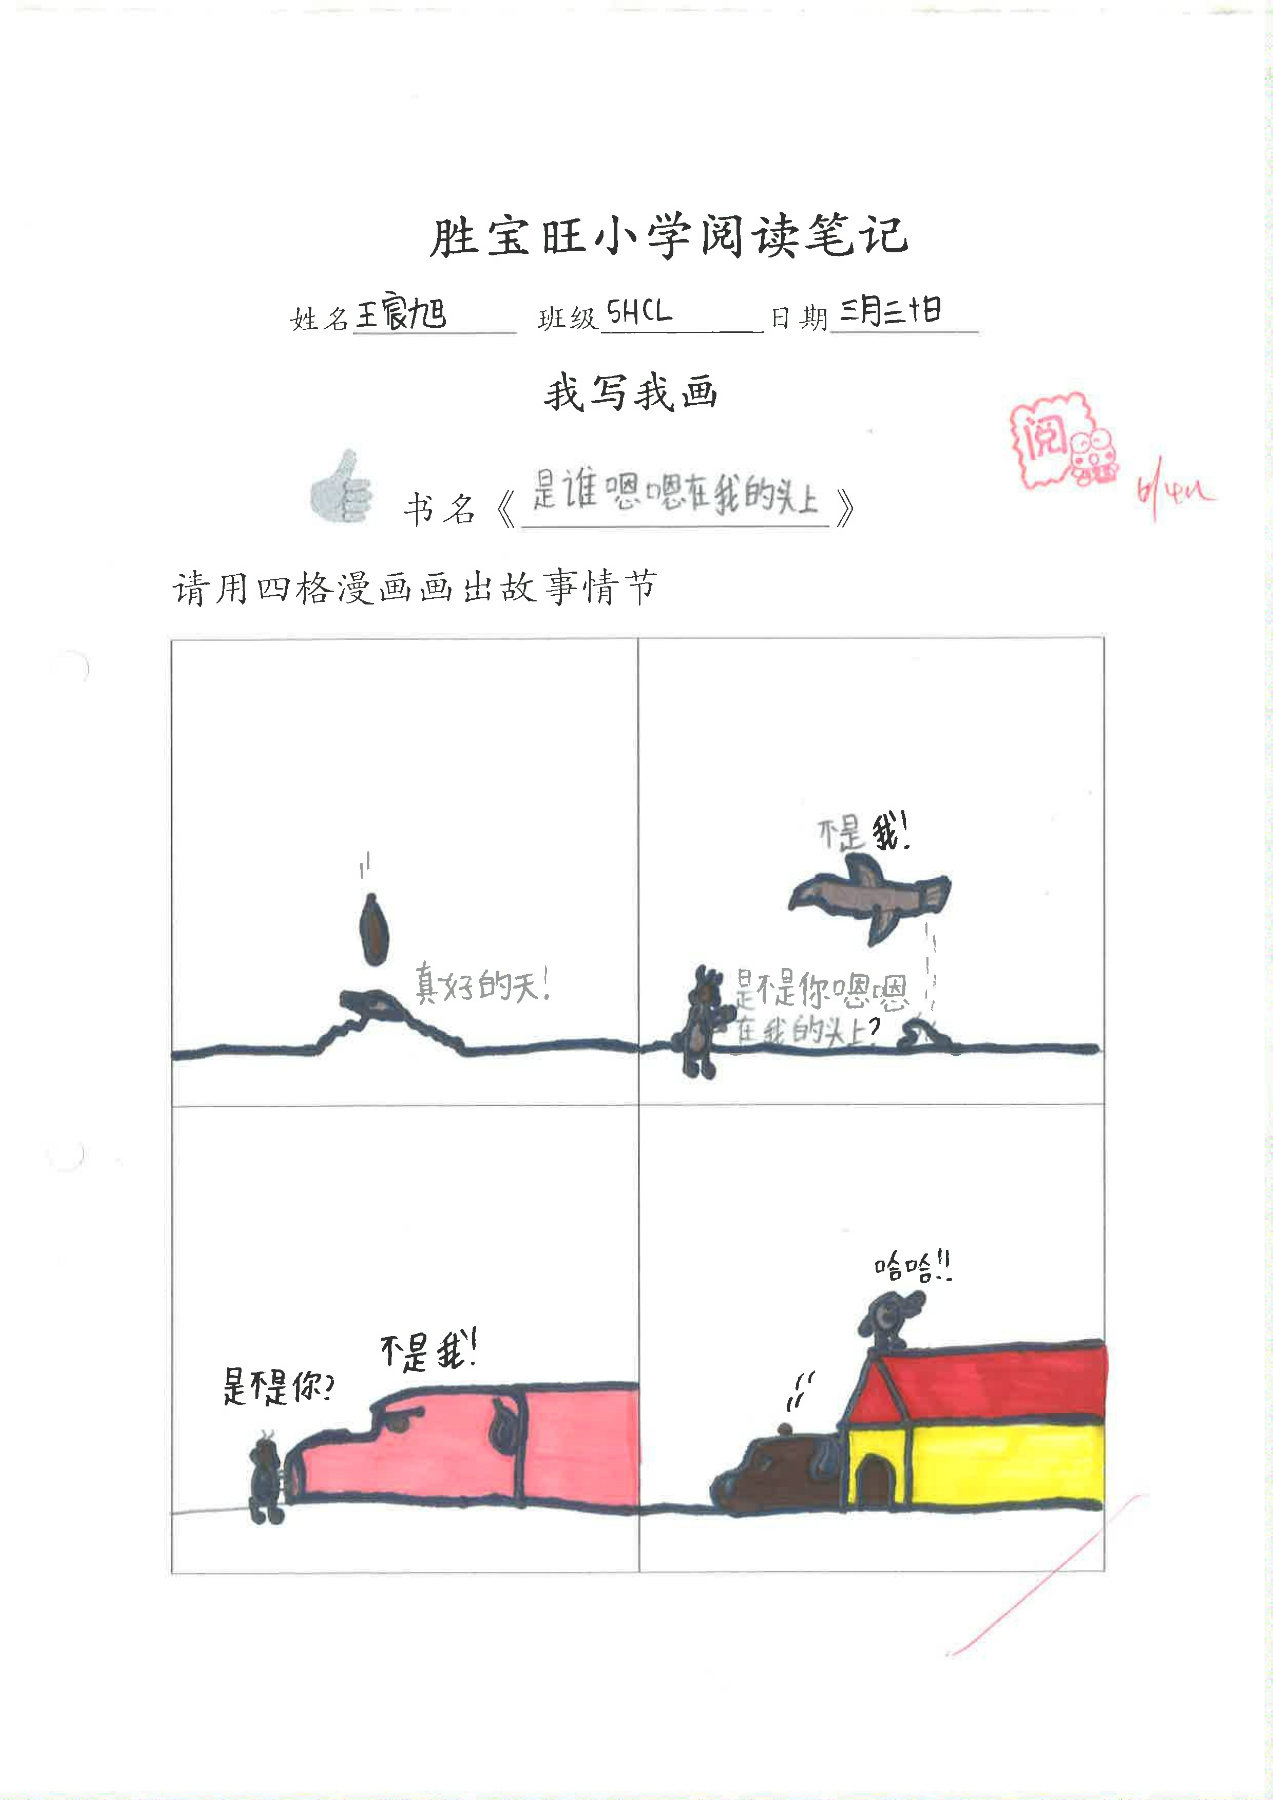 胜宝旺小学阅读笔记
姓名王宸旭 班级5HCL 日期三月三十日
我写我画
阅
书名《是谁嗯嗯在我的头上》
请用四格漫画画出故事情节
真好的天!
不是我!
是不是你嗯嗯
在我的头上?
是不是你?
不是我!
哈哈!!